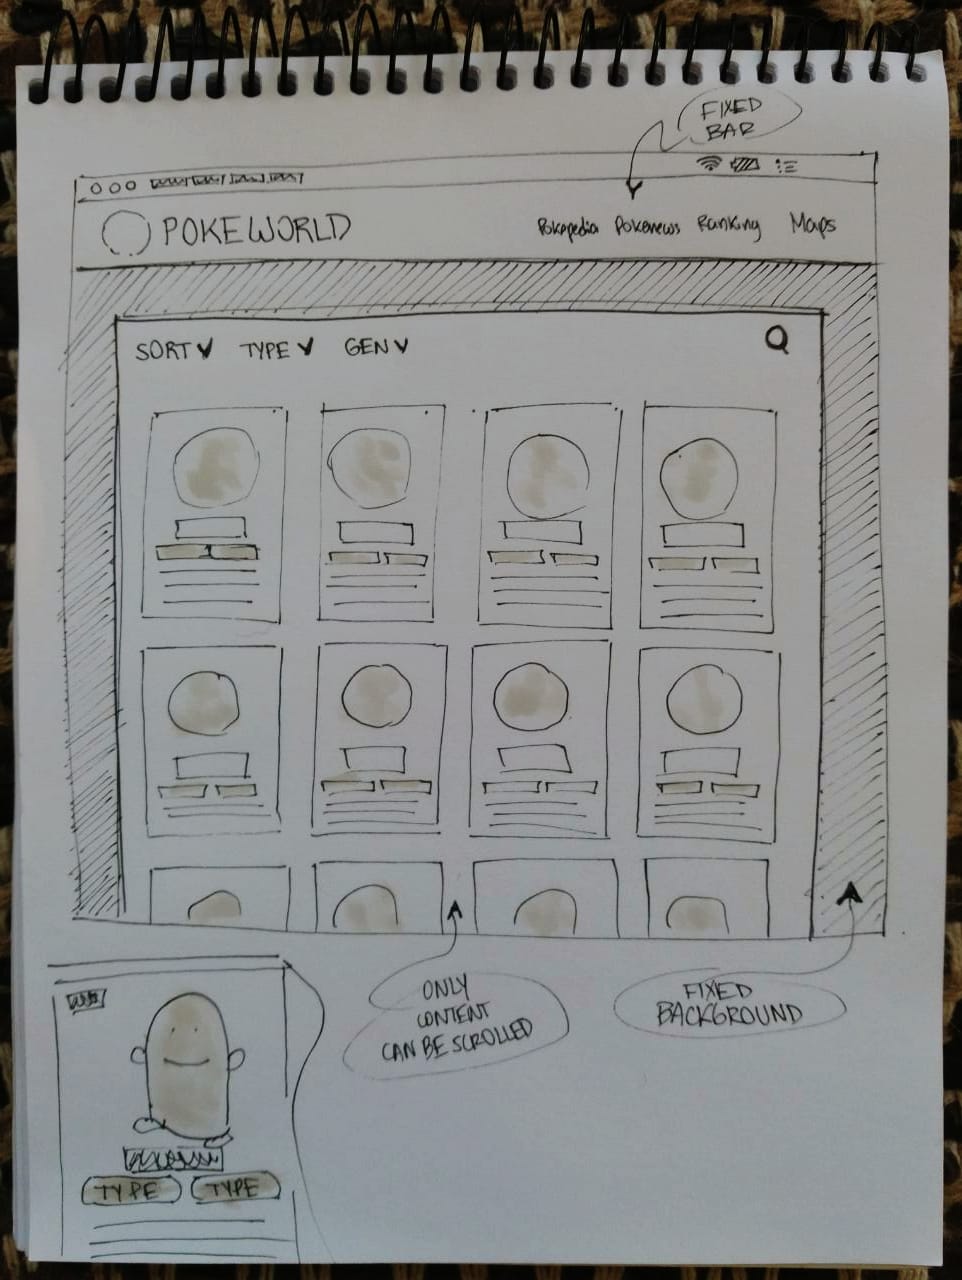 FIXED
BAR
POKEWORLD
Pokepedia Pokenews Ranking Maps
SORT TYPE GEN
ONLY
CONTENT
CAN BE SCROLLED
FIXED
BACKGROUND
TYPE TYPE